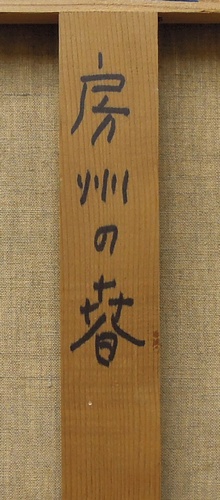 房州の春